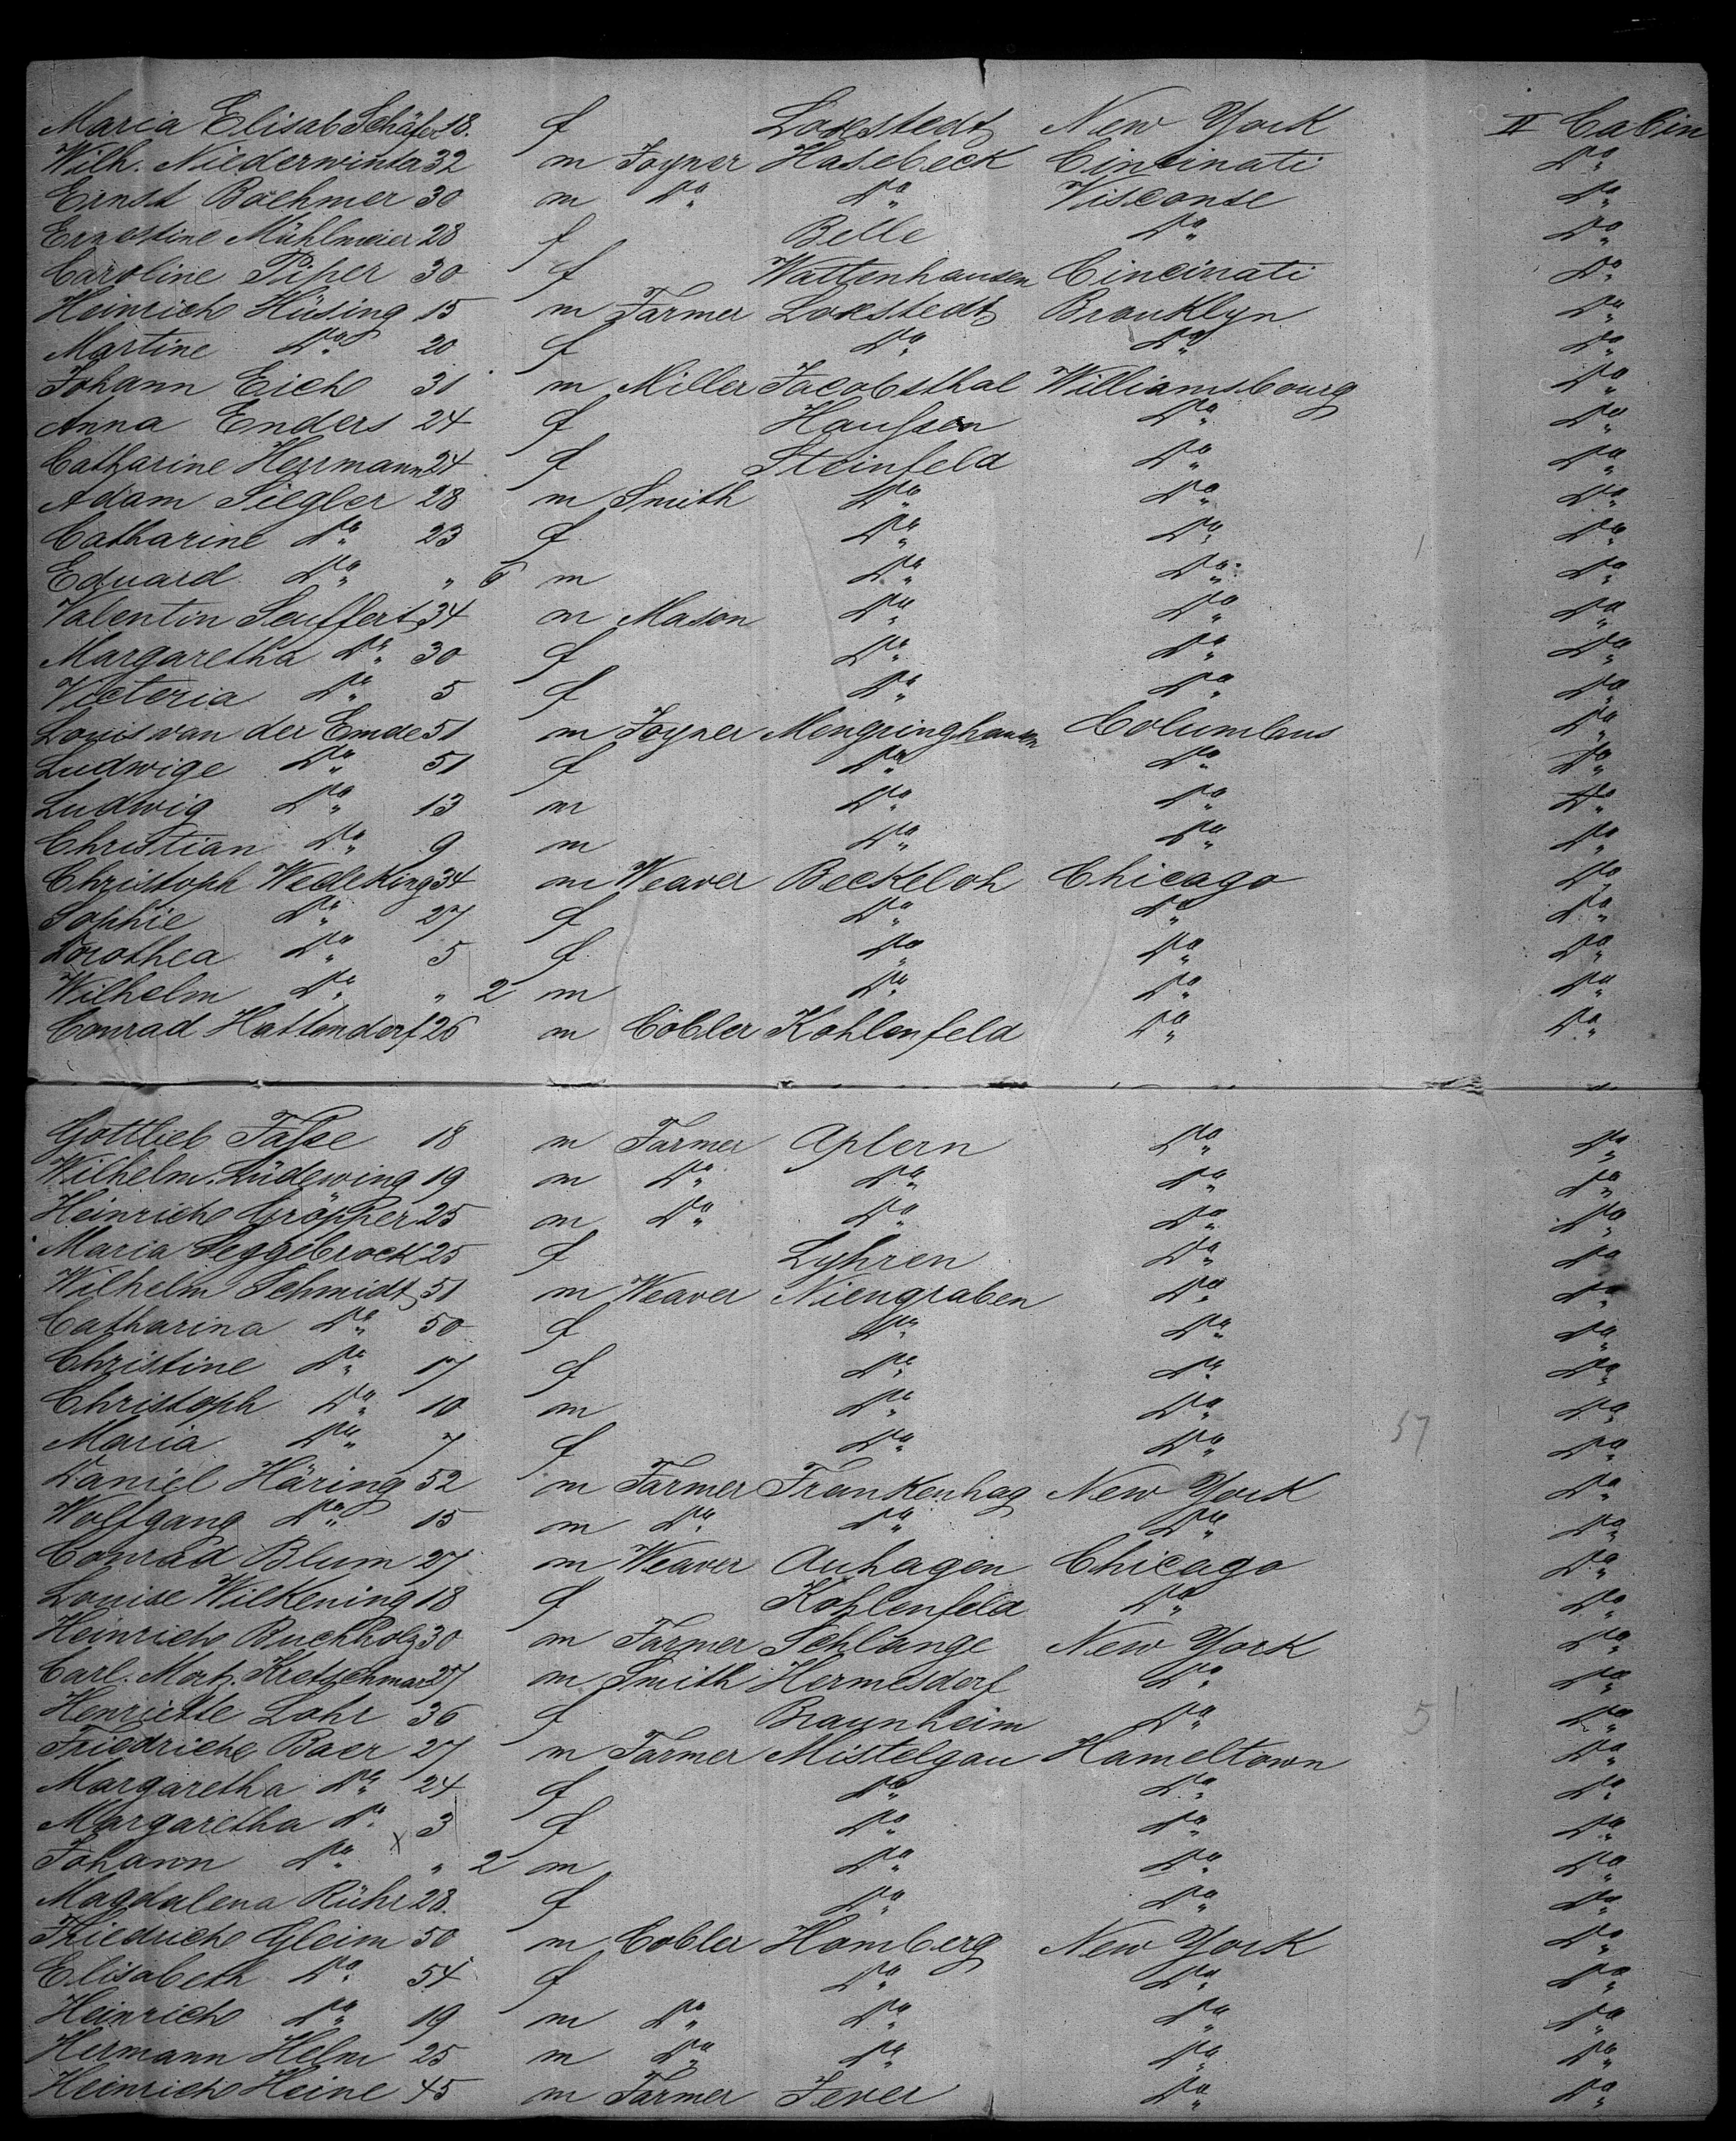 Maria Elisab Schäfer 18. f Loxstedt New York II Cabin
Wilh. Niederwinter 32 m Joyner Hasebeck Cincinati Do
Ernst Boehmer 30 m Do Do Visconse Do
Ernestine Mühlmeier 28 f Belle Do Do
Caroline Piper 30 f Wattenhausen Cincinati Do
Heinrich Hüsing 15 m Farmer Loxstedt Brouklyn Do
Martine Do 20 f Do Do Do
Johann Eich 31 m Miller Jacobsthal Williamsbourg Do
Anna Enders 24 f Haussen Do Do
Catharine Herrmann 24 f Steinfeld Do Do
Adam Siegler 28 m Smith Do Do Do
Catharine Do 23 f Do Do Do
Eduard Do " 6 m Do Do Do
Valentin Seuffert 34 m Mason Do Do Do
Margaretha Do 30 f Do Do Do
Victoria Do 5 f Do Do Do
Louis van der Emde 51 m Joyner Mengringhausen Columbus Do
Ludwige Do 51 f Do Do Do
Ludwig Do 13 m Do Do Do
Christian Do 9 m Do Do Do
Christoph Wedeking 34 m Weaver Beckeloh Chicago Do
Sophie Do 27 f Do Do Do
Dorothea Do 5 f Do Do Do
Wilhelm Do " 2 m Do Do Do
Conrad Hattendorf 26 m Cobler Kohlenfeld Do Do
Gottlieb Fasse 18 m Farmer Aplern Do Do
Wilhelm Lüdewing 19 m Do Do Do Do
Heinrich Cröpper 25 m Do Do Do Do
Maria Seggebrock 25 f Lyhren Do Do
Wilhelm Schmidt 51 m Weaver Niengraben Do Do
Catharina Do 50 f Do Do Do
Christine Do 17 f Do Do Do
Christoph Do 10 m Do Do Do
Maria Do 7 f Do Do 57 Do
Daniel Häring 52 m Farmer Frankenhag New York Do
Wolfgang Do 15 m Do Do Do Do
Conrad Blum 27 m Weaver Auhagen Chicago Do
Louise Wilkening 18 f Kohlenfeld Do Do
Heinrich Buchholz 30 m Farmer Schlange New York Do
Carl. Mort. Kretschmar 27 m Smith Hermesdorf Do Do
Henriette Lohr 36 f Braunheim Do 51 Do
Friedrich Baer 27 m Farmer Mistelgau Hameltown Do
Margaretha Do 24 f Do Do Do
Margaretha Do 3 f Do Do Do
Johann Do x " 2 m Do Do Do
Magdalena Rühr 28. f Do Do Do
Friedrich Gleim 50 m Cobler Homberg New York Do
Elisabeth Do 54 f Do Do Do
Heinrich Do 19 m Do Do Do Do
Hermann Helm 25 m Do Do Do Do
Heinrich Heine 45 m Farmer Jever Do Do